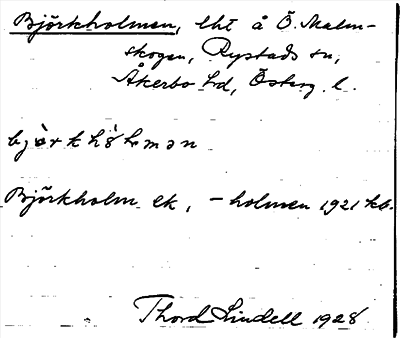 Björkholmen, lht å Ö. Malm-
skogen, Rystads sn,
Åkerbo hd, Österg. l.
Björkholm ek, - holmen 1921 kb.
Thord Lindell 1928